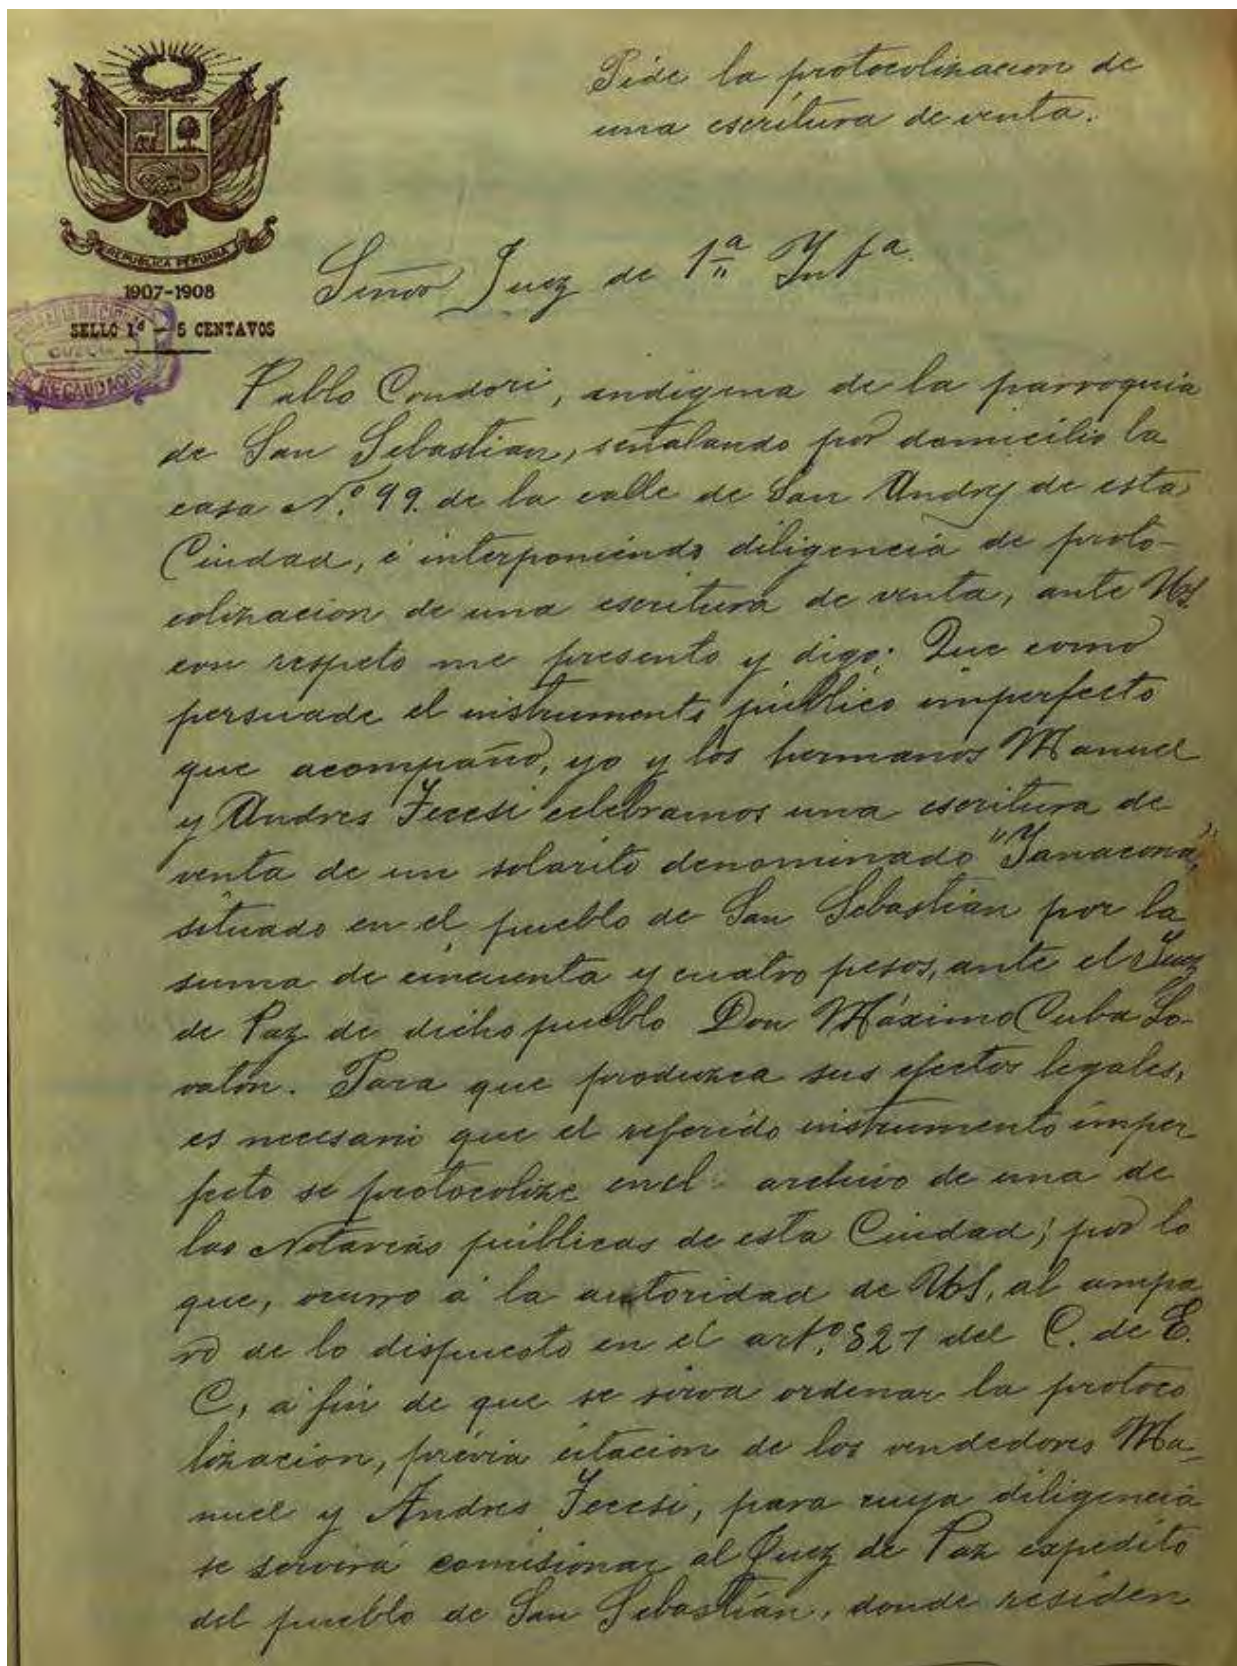 Pide la protocolizacion de
una escritura de venta.
REPUBLICA PERUANA
1907-1908
SELLO 1º - 5 CENTAVOS
CUZCO
RECAUDACION
Señor Juez de 1ª Instª.
Pablo Condori, indígena de la parroquia
de San Sebastian, señalando por domicilio la
casa Nº. 99. de la calle de San Andres de esta
Ciudad, é interponiendo diligencia de proto-
colizacion de una escritura de venta, ante US.
con respeto me presento y digo: Que como
persuade el instrumento público imperfecto
que acompaño, yo y los hermanos Manuel
y Andres Feccsi celebramos una escritura de
venta de un solarito denominado "Yanacona",
situado en el pueblo de San Sebastián por la
suma de cincuenta y cuatro pesos, ante el Juez
de Paz de dicho pueblo Don Máximo Cuba Lo-
vatón. Para que produzca sus efectos legales,
es necesario que el referido instrumento imper
fecto se protocolize en el archivo de una de
las Notarías públicas de esta Ciudad; por lo
que, ocurro á la autoridad de US, al ampa
ro de lo dispuesto en el artº. 827 del C. de E.
C, á fin de que se sirva ordenar la protoco
lizacion, prévia citacion de los vendedores Ma-
nuel y Andres Feccsi, para cuya diligencia
se servirá comisionar al Juez de Paz expedito
del pueblo de San Sebastián, donde residen